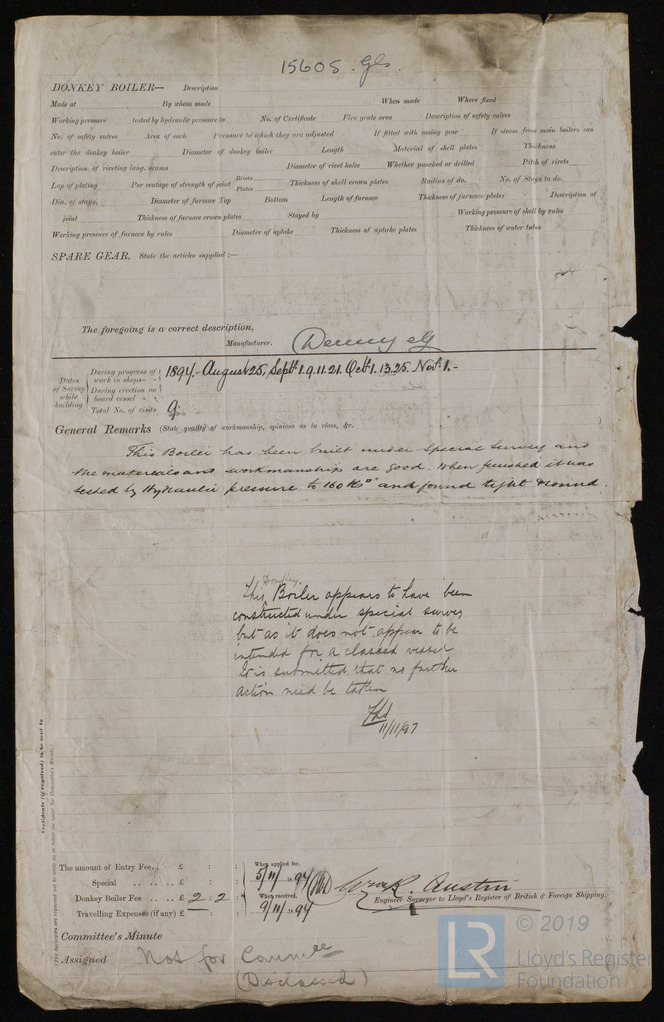 15605 Gls.
DONKEY BOILER— Description
Made at By whom made When made Where fixed
Working pressure tested by hydraulic pressure to No. of Certificate Fire grate area Description of safety valves
No. of safety valves Area of each Pressure to which they are adjusted If fitted with easing gear If steam from main boilers can
enter the donkey boiler Diameter of donkey boiler Length Material of shell plates Thickness
Description of riveting long. seams Diameter of rivet holes Whether punched or drilled Pitch of rivets
Lap of plating Per centage of strength of joint Rivets Plates Thickness of shell crown plates Radius of do. No. of Stays to do.
Dia. of stays. Diameter of furnace Top Bottom Length of furnace Thickness of furnace plates Description of
joint Thickness of furnace crown plates Stayed by Working pressure of shell by rules
Working pressure of furnace by rules Diameter of uptake Thickness of uptake plates Thickness of water tubes
SPARE GEAR. State the articles supplied :—
The foregoing is a correct description,
Manufacturer. Denny
Dates of Survey while building
During progress of work in shops - -
During erection on board vessel - -
Total No. of visits 9
1894 - August 25, Sept 1. 9. 11. 21. Oct 1. 13. 25. Nov 1. -
General Remarks (State quality of workmanship, opinions as to class, &c.
This Boiler has been built under Special Survey and
the materials and workmanship are good. When finished it was
tested by Hydraulic pressure to 160 lbs □" and found tight & sound.
This Donkey Boiler appears to have been
constructed under special survey
but as it does not appear to be
intended for a classed vessel
It is submitted that no further
action need be taken
11/11/97
Certificate (if required) to be sent to
The amount of Entry Fee.. £ : :
Special .. .. .. .. £ : :
Donkey Boiler Fee .. .. £ 2 : 2 :
Travelling Expenses (if any) £ : :
When applied for,
5/11/1894
When received,
9/11/1894
Wm R. Austin
Engineer Surveyor to Lloyd's Register of British & Foreign Shipping.
Committee's Minute
Assigned Not for Committee
(Disclassed)
LR
© 2019
Lloyd's Register
Foundation